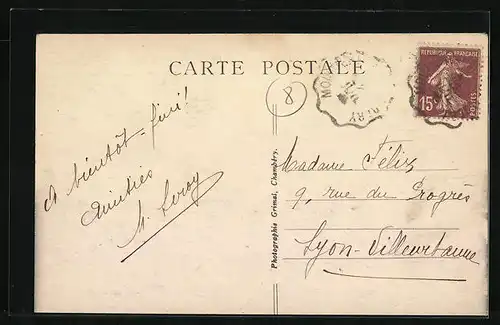 CARTE POSTALE
8
REPUBLIQUE FRANÇAISE
15
POSTES
A bientôt - fini!
Amitiés
Photographie Grimal, Chambéry.
Madame Féliz
9, rue du Progrès
Lyon-Villeurbanne